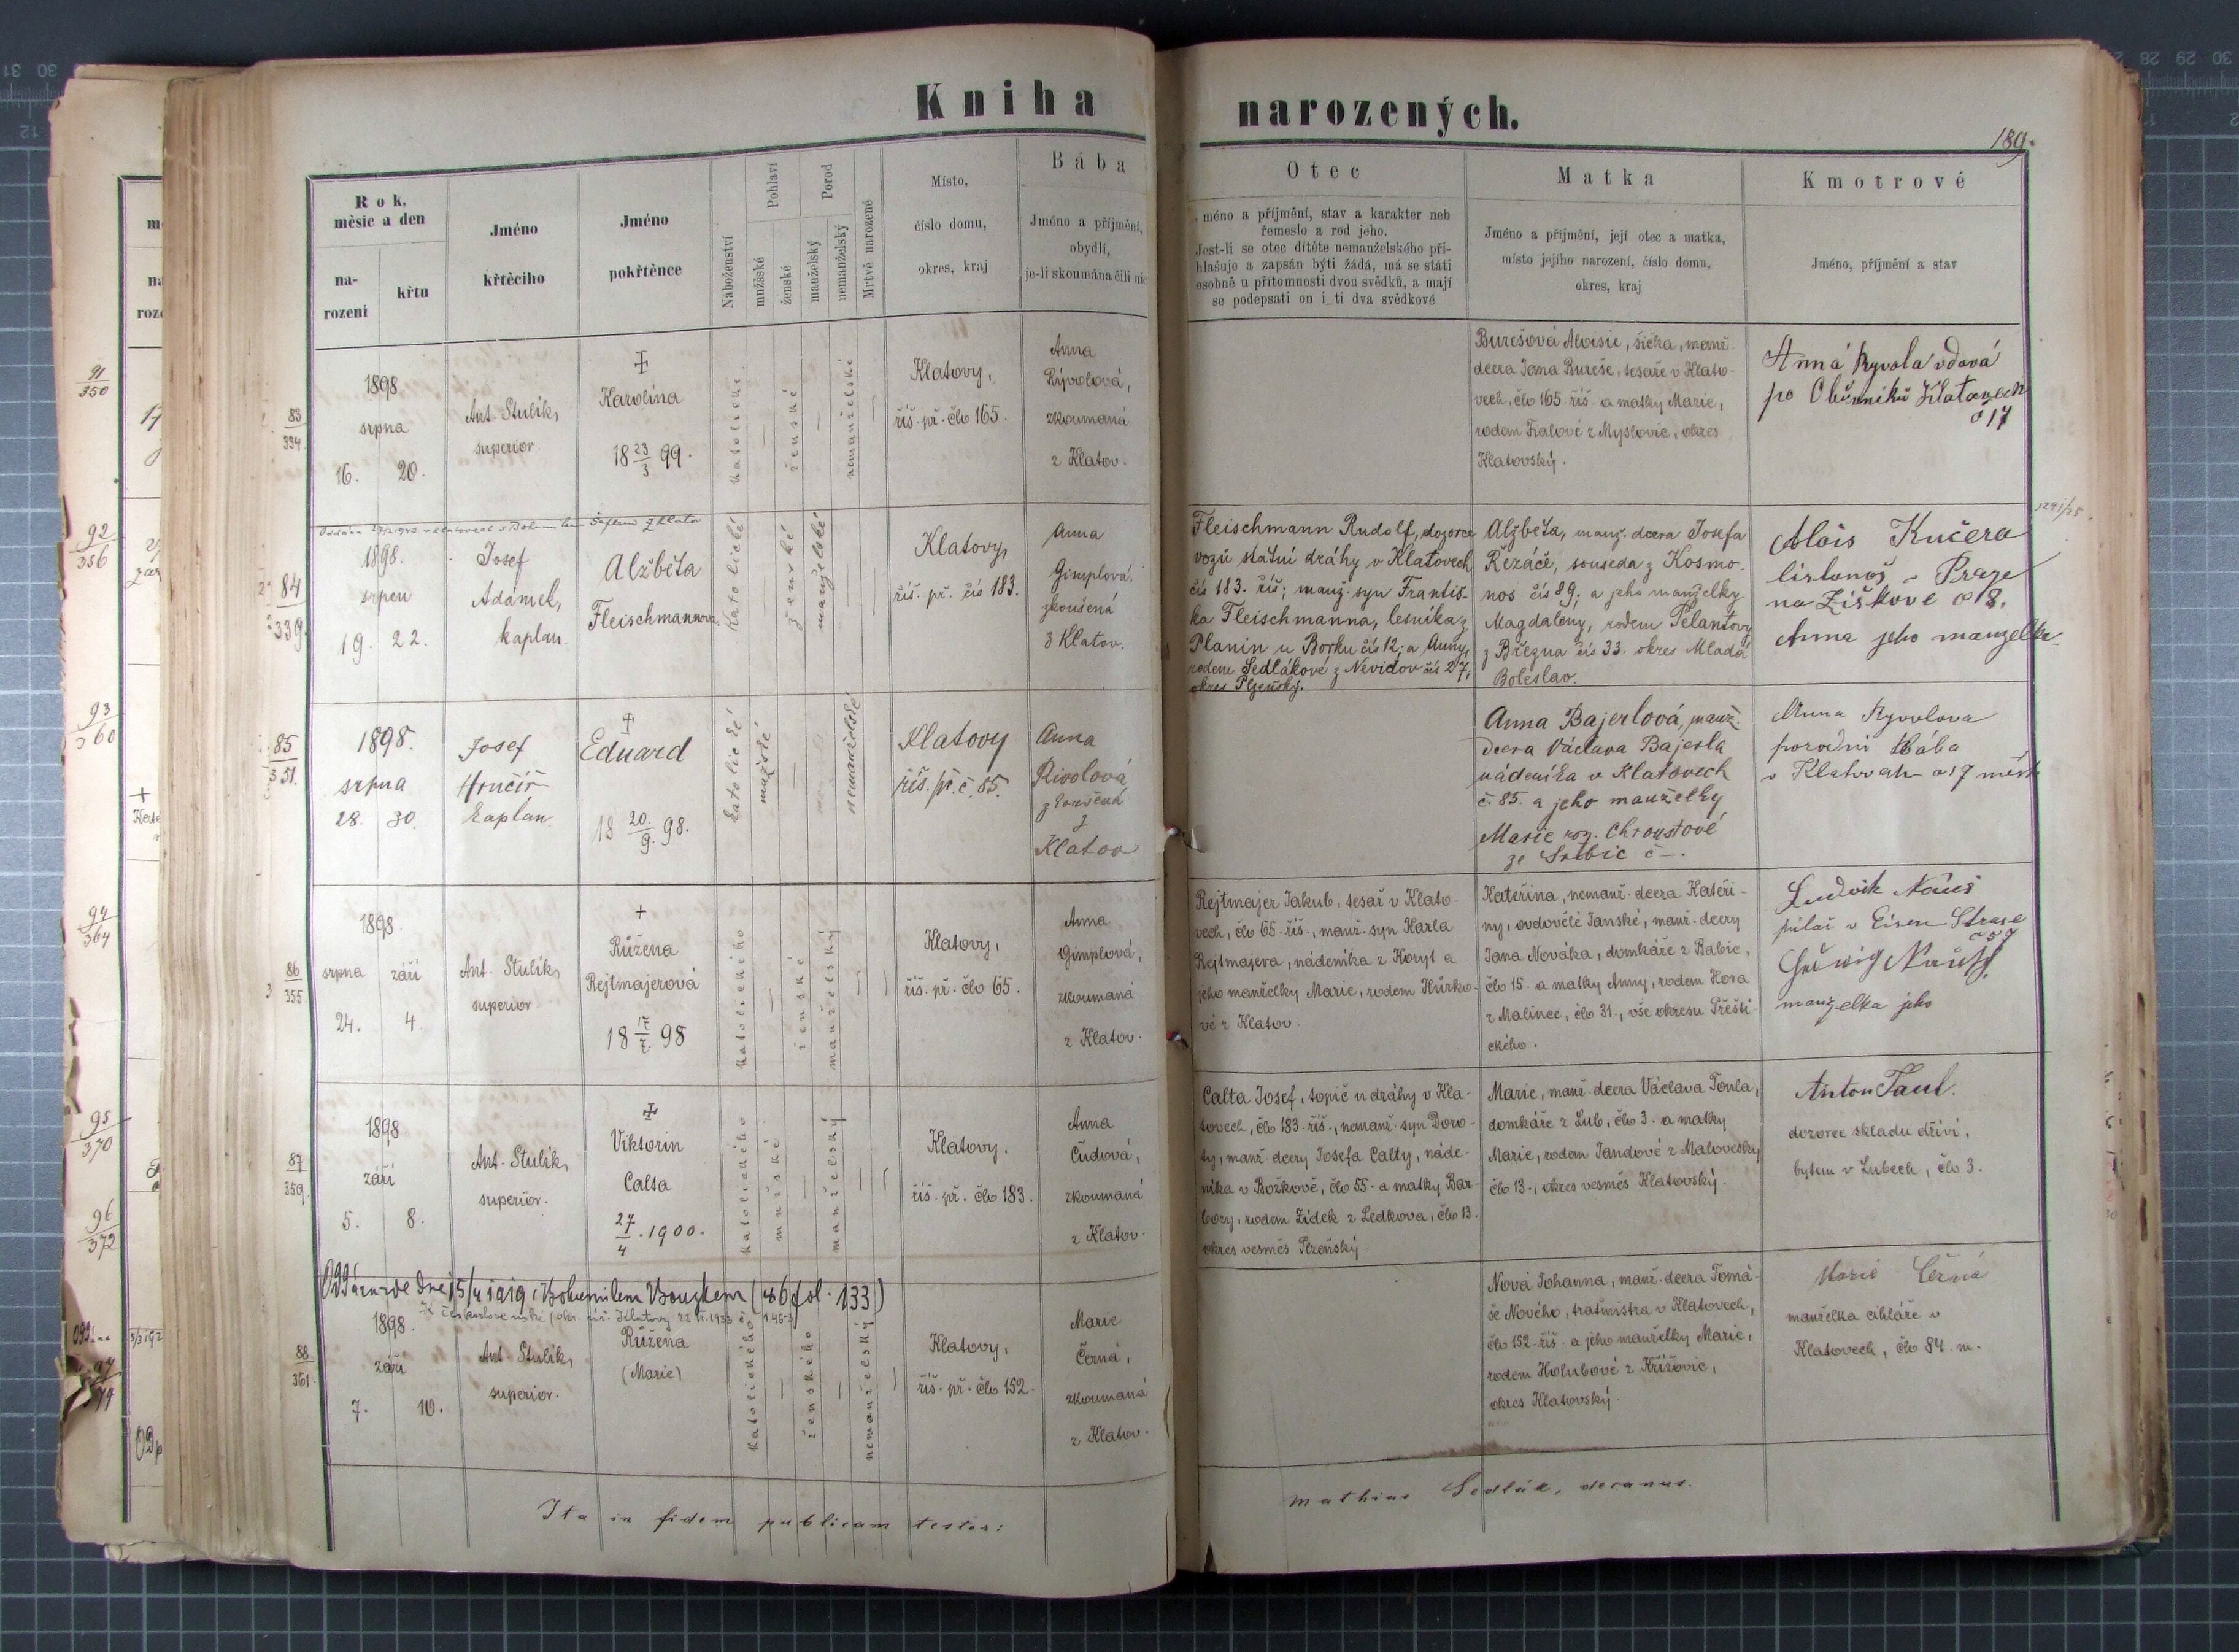 Kniha narozených.
189.
Rok, měsíc a den
narození
křtu
Jméno křtěcího
Jméno pokřtěnce
Náboženství
Pohlaví
mužské
ženské
Porod
manželský
nemanželský
Mrtvě narozené
Místo,
číslo domu,
okres, kraj
Bába
Jméno a příjmění,
obydlí,
je-li zkoumána čili nic
Otec
méno a příjmění, stav a karakter neb
řemeslo a rod jeho.
Jest-li se otec dítěte nemanželského při-
hlašuje a zapsán býti žádá, má se státi
osobně u přítomnosti dvou svědků, a mají
se podepsati on i ti dva svědkové
Matka
Jméno a příjmění, její otec a matka,
místo jejího narození, číslo domu,
okres, kraj
Kmotrové
Jméno, příjmění a stav
91
350
92
356
93
360
94
364
95
370
96
372
83
334.
1898
srpna
16. 20.
Ant. Stulík,
superior.
Karolína
18 23/3 99.
katolické
ženské
nemanželské
Klatovy,
říš. př. člo 165.
Anna
Rývolová,
zkoumaná
z Klatov.
Burešová Aloisie, šička, manž.
dcera Jana Bureše, tesaře v Klato-
vech, člo 165 říš. a matky Marie,
rodem Fialové z Myslovic, okres
Klatovský.
Anna Ryvola vdová
po Obůvniků Klatovech
č 17
84
339.
1898.
srpen
19. 22.
Josef
Adámek,
kaplan.
Alžběta
Fleischmannova.
katolické
ženské
manželské
Klatovy,
říš. př. čís 183.
Anna
Gimplová,
zkoušená
z Klatov.
Fleischmann Rudolf, dozorce
vozů státní dráhy v Klatovech
čís 183. říš; manž. syn Františ-
ka Fleischmanna, lesníka z
Planin u Borku čís 12; a Anny,
rodem Sedlákové z Nevidov čís 27;
okres Plzeňský.
Alžběta, manž. dcera Josefa
Řezáče, souseda z Kosmo-
nos čís 89; a jeho manželky
Magdaleny, rodem Pelantovy
z Března čís 33. okres Mladá
Boleslav.
Alois Kučera
listonoš - Praze
na Žiškove č 8.
Anna jeho manzelka
85
351.
1898.
srpna
28. 30.
Josef
Hončíř
kaplan.
Eduard
18 20./9. 98.
katolické
mužské
nemanželské
Klatovy
říš. př. č. 85.
Anna
Rivolová
zkoušená
z
Klatov
Anna Bajerlová, manž.
dcera Václava Bajerla
nádeníka v Klatovech
č. 85. a jeho manželky
Marie roz. Chroustové
ze Srbic č —.
Anna Ryvolova
porodní bába
v Klatovech č 17 měst
86
355.
1898
srpna září
24. 4.
Ant. Stulík,
superior
Růžena
Rejtmajerová
18 17/7. 98
katolického
ženské
manželský
Klatovy,
říš. př. člo 65.
Anna
Gimplová,
zkoumaná
z Klatov.
Rejtmajer Jakub, tesař v Klato-
vech, člo 65. říš., manž. syn Karla
Rejtmajera, nádeníka z Koryt a
jeho manželky Marie, rodem Hůrko-
vé z Klatov.
Kateřina, nemanž. dcera Kateři-
ny, ovdovělé Janské, manž. dcery
Jana Nováka, domkáře z Rabie,
člo 15. a matky Anny, rodem Hora
z Malinec, člo 31., vše okresu Přešti-
ckého.
Ludvik Nauš
pilař v Eisen Strase
č 57
manzelka jeho
87
359.
1898.
září
5. 8.
Ant. Stulík,
superior.
Viktorin
Calta
27/4. 1900.
katolického
mužské
manželský
Klatovy.
říš. př. člo 183.
Anna
Čudová,
zkoumaná
z Klatov.
Calta Josef, topič u dráhy v Kla-
tovech, člo 183. říš., nemanž. syn Doro-
ty, manž. dcery Josefa Calty, náde-
níka v Božkově, člo 55. a matky Bar-
bory, rodem Židek z Ledkova, člo 13.
okres vesměs Plzeňský.
Marie, manž. dcera Václava Toula,
domkáře z Lub, člo 3. a matky
Marie, rodem Jandové z Malovesky
člo 13., okres vesměs Klatovský.
Anton Taul.
dozorce skladu dříví,
bytem v Lubech, člo 3.
Oddána zde dne 15/4 1919 s Bohumilem Vouzkem (46 fol. 133)
88
361.
1898.
září
7. 10.
Ant. Stulík,
superior.
Růžena
(Marie)
katolického
ženského
nemanželský
Klatovy,
říš. př. člo 152.
Marie
Černá,
zkoumaná
z Klatov.
Nová Johanna, manž. dcera Tomá-
še Nového, traťmistra v Klatovech,
člo 152. říš. a jeho manželky Marie,
rodem Holubové z Křížovic,
okres Klatovský.
Marie Černá
manželka cihláře v
Klatovech, člo 84. m.
Ita in fidem publicam testor:
Mathias Sedlák, decanus.